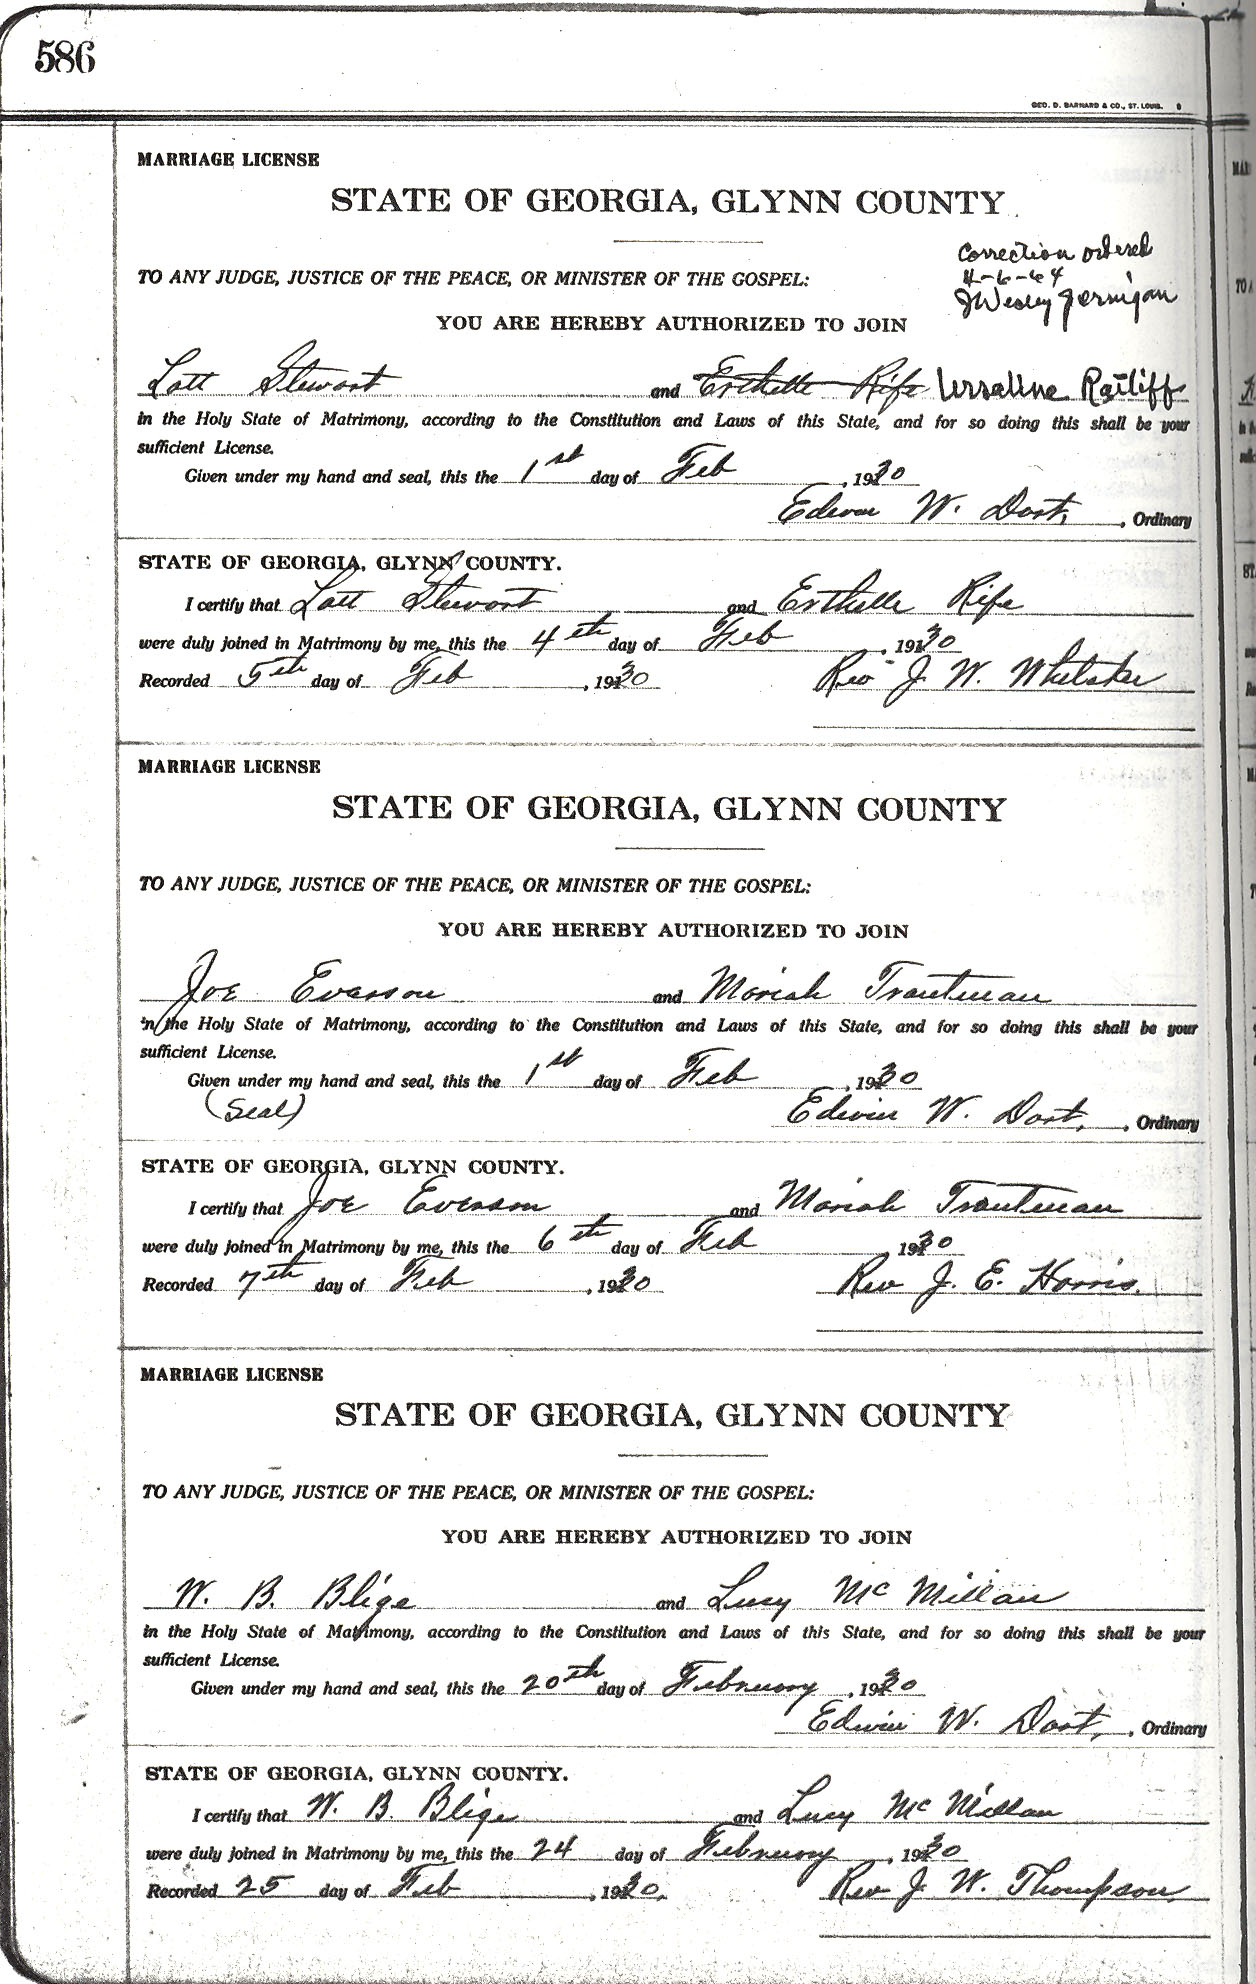 586
GEO. D. BARNARD & CO., ST. LOUIS.
MARRIAGE LICENSE
STATE OF GEORGIA, GLYNN COUNTY
Correction ordered
4-6-64
J Wesley Jernigan
TO ANY JUDGE, JUSTICE OF THE PEACE, OR MINISTER OF THE GOSPEL:
YOU ARE HEREBY AUTHORIZED TO JOIN
Lott Stewart and Erthelle Rife Ursaline Ratliff
in the Holy State of Matrimony, according to the Constitution and Laws of this State, and for so doing this shall be your
sufficient License.
Given under my hand and seal, this the 1st day of Feb, 1930
Edwin W. Dart, Ordinary
STATE OF GEORGIA, GLYNN COUNTY.
I certify that Lott Stewart and Erthelle Rife
were duly joined in Matrimony by me, this the 4th day of Feb, 1930
Recorded 5th day of Feb, 1930 Rev J. W. Whitaker
MARRIAGE LICENSE
STATE OF GEORGIA, GLYNN COUNTY
TO ANY JUDGE, JUSTICE OF THE PEACE, OR MINISTER OF THE GOSPEL:
YOU ARE HEREBY AUTHORIZED TO JOIN
Joe Everson and Moriah Trautman
in the Holy State of Matrimony, according to the Constitution and Laws of this State, and for so doing this shall be your
sufficient License.
Given under my hand and seal, this the 1st day of Feb, 1930
(Seal) Edwin W. Dart, Ordinary
STATE OF GEORGIA, GLYNN COUNTY.
I certify that Joe Everson and Moriah Trautman
were duly joined in Matrimony by me, this the 6th day of Feb, 1930
Recorded 7th day of Feb, 1930 Rev J. E. Harris.
MARRIAGE LICENSE
STATE OF GEORGIA, GLYNN COUNTY
TO ANY JUDGE, JUSTICE OF THE PEACE, OR MINISTER OF THE GOSPEL:
YOU ARE HEREBY AUTHORIZED TO JOIN
W. B. Blige and Lucy McMillan
in the Holy State of Matrimony, according to the Constitution and Laws of this State, and for so doing this shall be your
sufficient License.
Given under my hand and seal, this the 20th day of February, 1930
Edwin W. Dart, Ordinary
STATE OF GEORGIA, GLYNN COUNTY.
I certify that W. B. Blige and Lucy McMillan
were duly joined in Matrimony by me, this the 24 day of February, 1930
Recorded 25 day of Feb, 1930. Rev J. W. Thompson